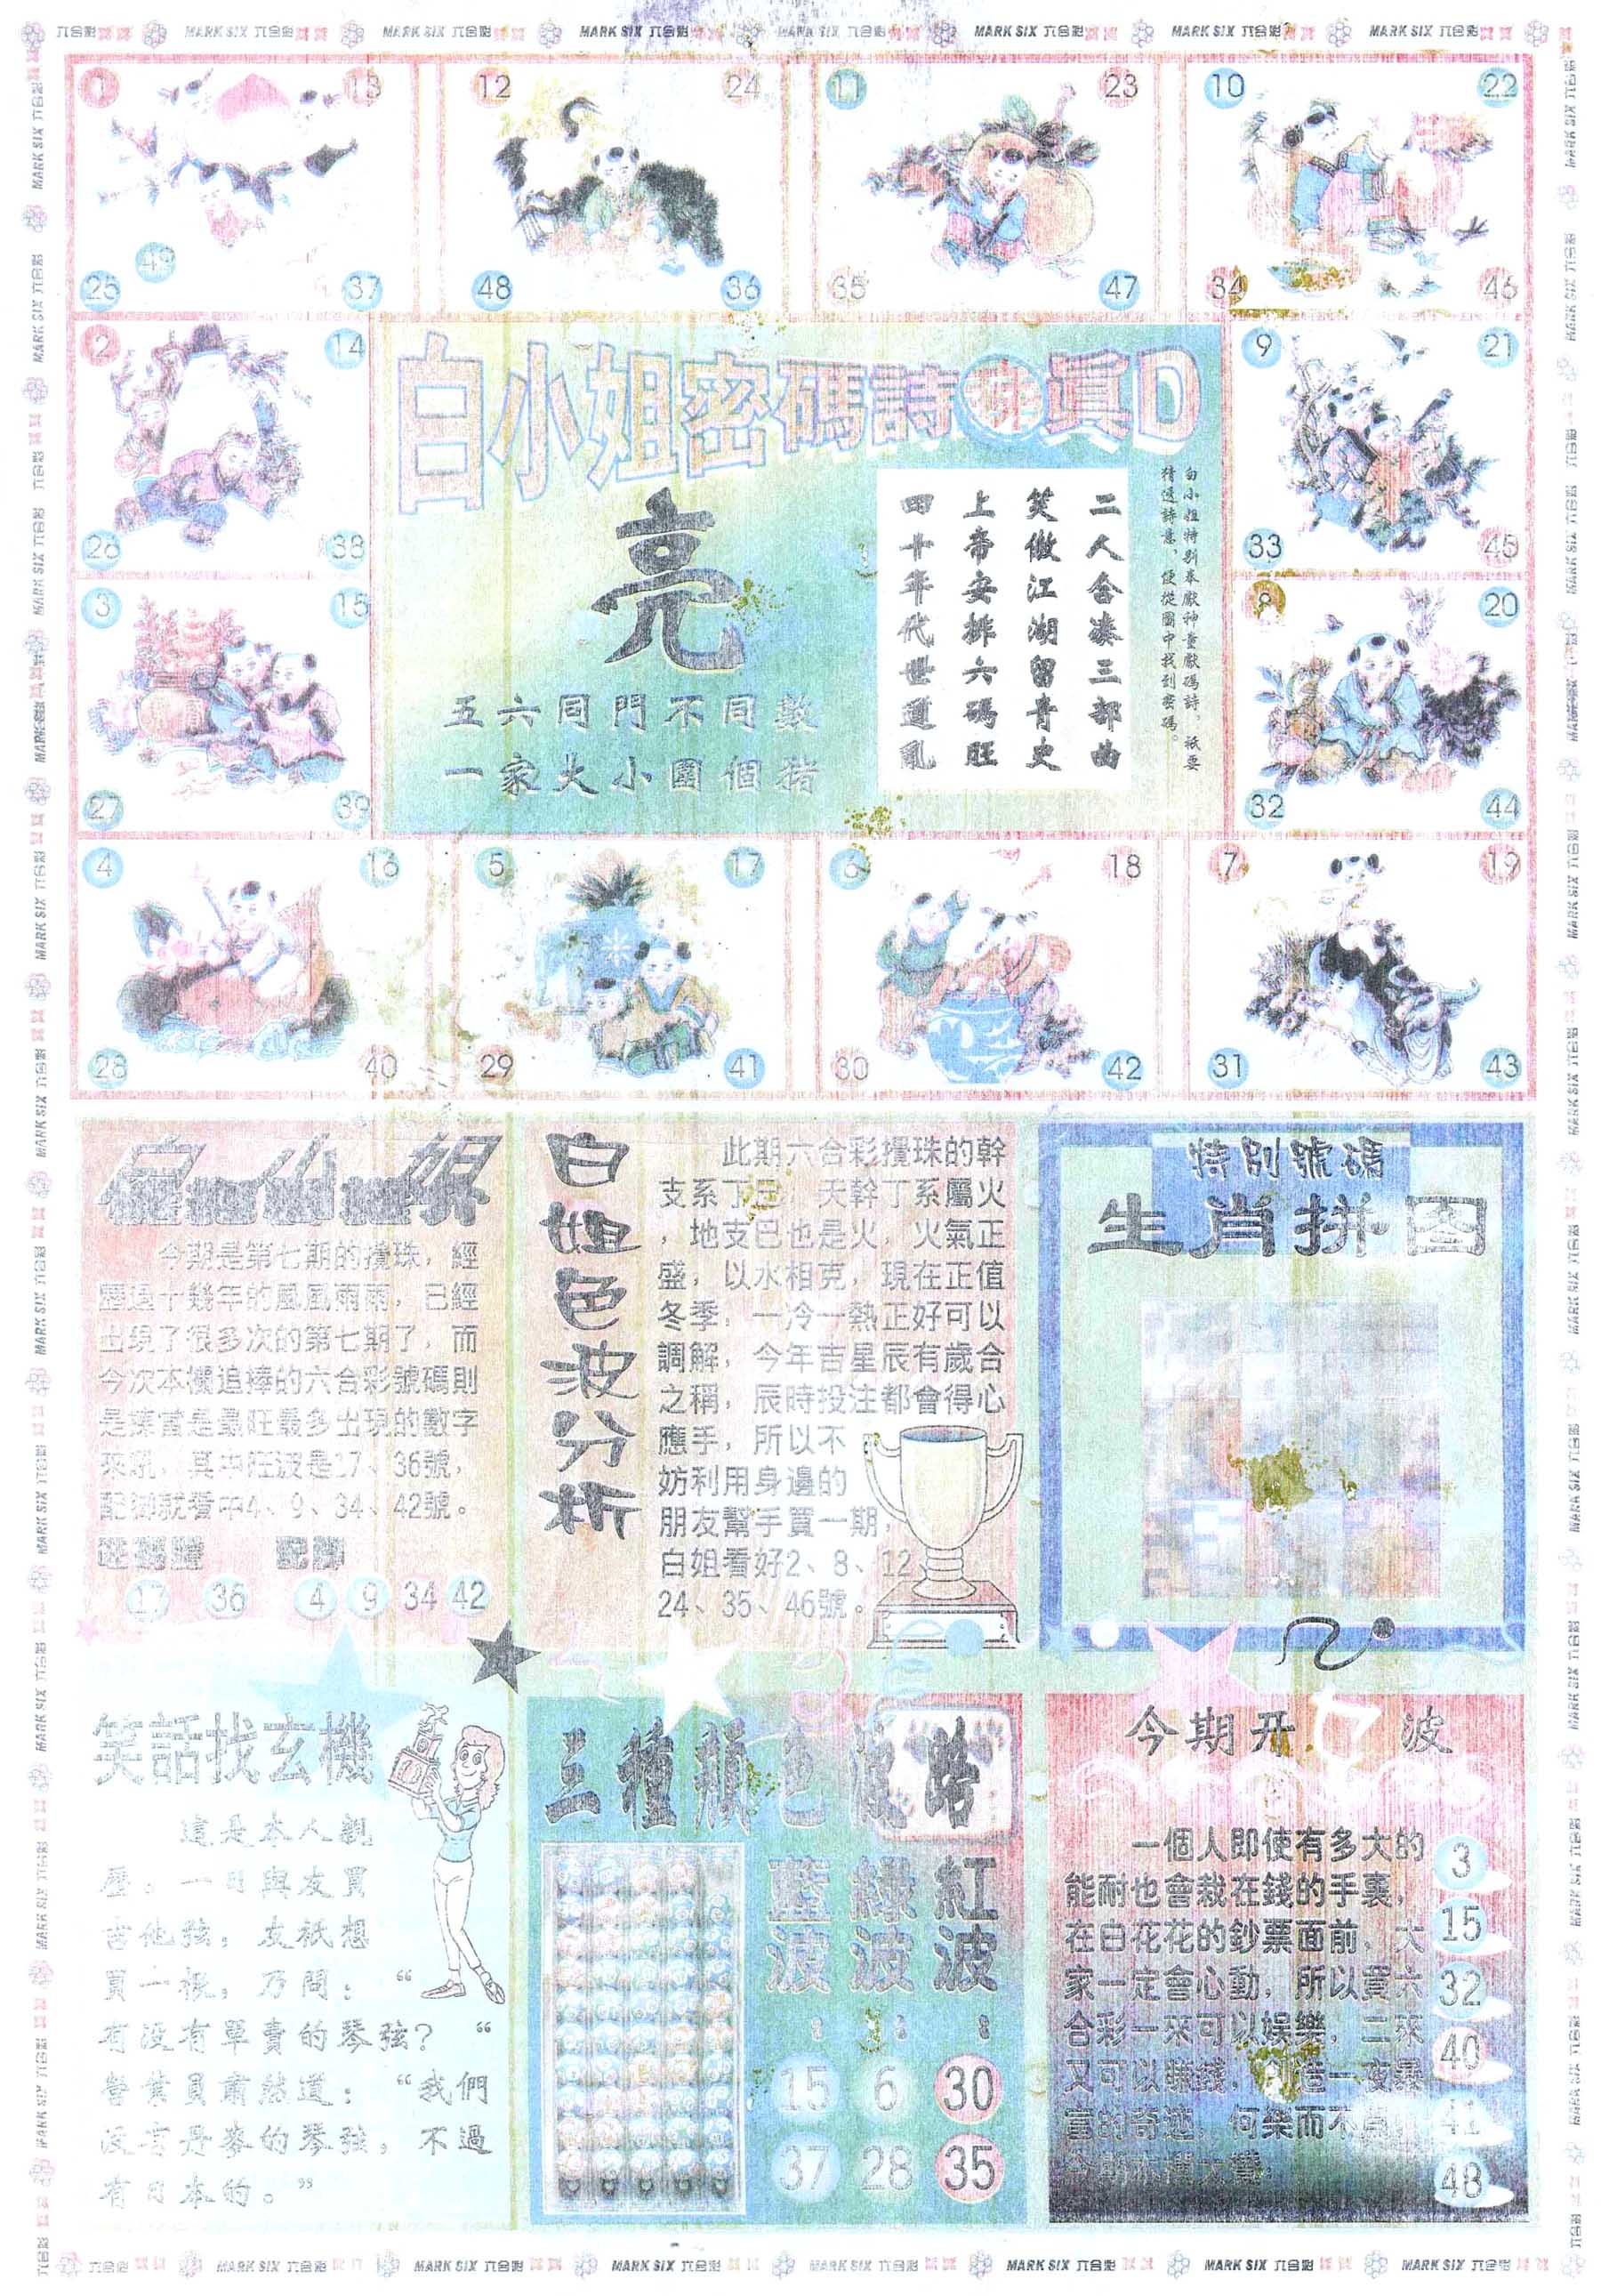 MARK SIX 六合彩
1 13 12 24 11 23 10 22
25 49 37 48 36 35 47 34 46
2 14
26 38
9 21
33 45
3 15
27 39
8 20
32 44
白小姐密碼詩 眞D
亮
五六同門不同數
一家大小圍個豬
白小姐特别奉獻神童獻碼詩，祇要
猜透詩意，便從圖中找到密碼。
二人合湊三部曲
笑傲江湖留青史
上帝安排六碼旺
四十年代世道亂
4 16 5 17 6 18 7 19
28 40 29 41 30 42 31 43
今期是第七期的攪珠，經
歷過十幾年的風風雨雨，已經
出現了很多次的第七期了，而
今次本欄追捧的六合彩號碼則
是最旺最多出現的數字
來 ，其中旺波是17、36號，
配 就看中4、9、34、42號。
17 36 4 9 34 42
白姐色波分析
此期六合彩攪珠的幹
支系丁巳，天幹丁系屬火
，地支巳也是火，火氣正
盛，以水相克，現在正值
冬季，一冷一熱正好可以
調解，今年吉星辰有歲合
之稱，辰時投注都會得心
應手，所以不
妨利用身邊的
朋友幫手買一期，
白姐看好2、8、12、
24、35、46號。
特别號碼
生肖拼图
笑話找玄機
這是本人親
歷，一日與友買
吉他弦，友祇想
買一根，乃問：“
有没有單賣的琴弦？“
營業員肅然道：“我們
没有丹麥的琴弦，不過
有日本的。”
三種顏色波路
紅波：
30
35
綠波：
6
28
藍波：
15
37
今期开 波
一個人即使有多大的
能耐也會栽在錢的手裏，
在白花花的鈔票面前，大
家一定會心動，所以買六
合彩一來可以娛樂，二來
又可以賺錢，創造一夜暴
富的奇迹，何樂而不
3
15
32
40
41
48
MARK SIX 六合彩